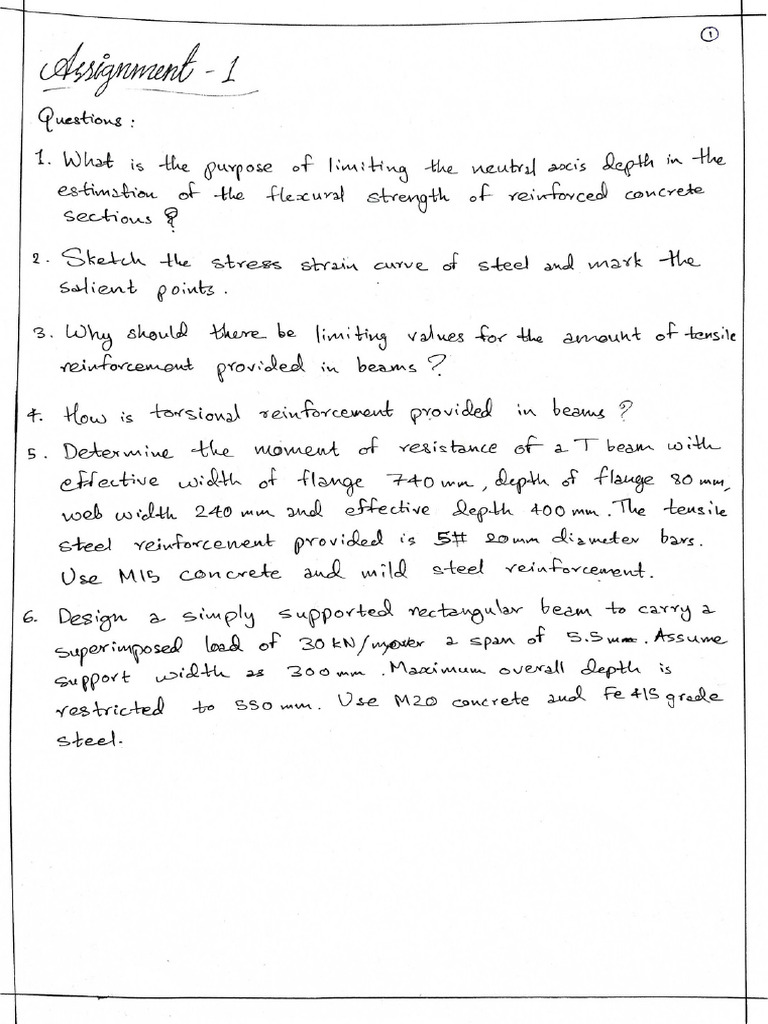 1
Assignment - 1
Questions :
1. What is the purpose of limiting the neutral axis depth in the
estimation of the flexural strength of reinforced concrete
sections ?
2. Sketch the stress strain curve of steel and mark the
salient points.
3. Why should there be limiting values for the amount of tensile
reinforcement provided in beams ?
4. How is torsional reinforcement provided in beams ?
5. Determine the moment of resistance of a T beam with
effective width of flange 740 mm, depth of flange 80 mm,
web width 240 mm and effective depth 400 mm. The tensile
steel reinforcement provided is 5# 20mm diameter bars.
Use M15 concrete and mild steel reinforcement.
6. Design a simply supported rectangular beam to carry a
superimposed load of 30 kN/m over a span of 5.5 m. Assume
support width as 300 mm. Maximum overall depth is
restricted to 550 mm. Use M20 concrete and Fe 415 grade
steel.